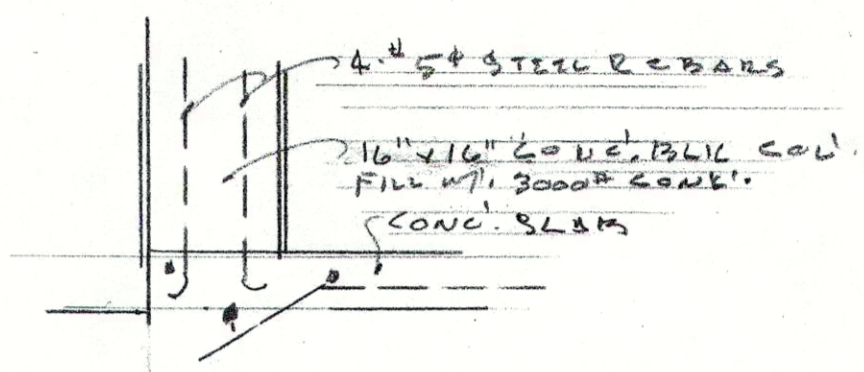 4-#5⌀ STEEL REBARS
16"x16" CONC'. BLK COL'.
FILL W/. 3000# CONC'.
CONC'. SLAB